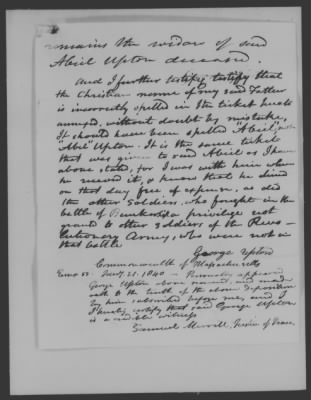 remains the widow of said
Abiel Upton deceased.
And I further testify testify that
the Christian name of my said Father
is incorrectly spelled in the ticket hereto
annexed, without doubt by mistake,
It should have been spelled "Abiel," not
"Abel" Upton. It is the same ticket
that was given to said Abiel as I have
above stated, for I was with him when
he received it, & know that he dined
on that day free of expense, as did
the other Soldiers, who fought in the
battle of Bunkerhill a privilege not
granted to other Soldiers of the Revo-
lutionary Army, who were not in
that battle
George Upton
Commonwealth of Massachusetts
Essex ss. Jany. 21. 1840 — Personally appeared
George Upton above named, and made
oath to the truth of the above deposition
by him subscribed before me, and I
hereby certify that said George Upton
is a credible witness
Samuel Merrill, Justice of Peace